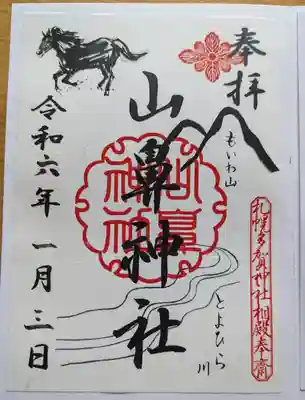 奉拝
もいわ山
札幌多賀神社相殿奉斎
とよひら川
山鼻神社
山鼻神社
令和六年一月三日